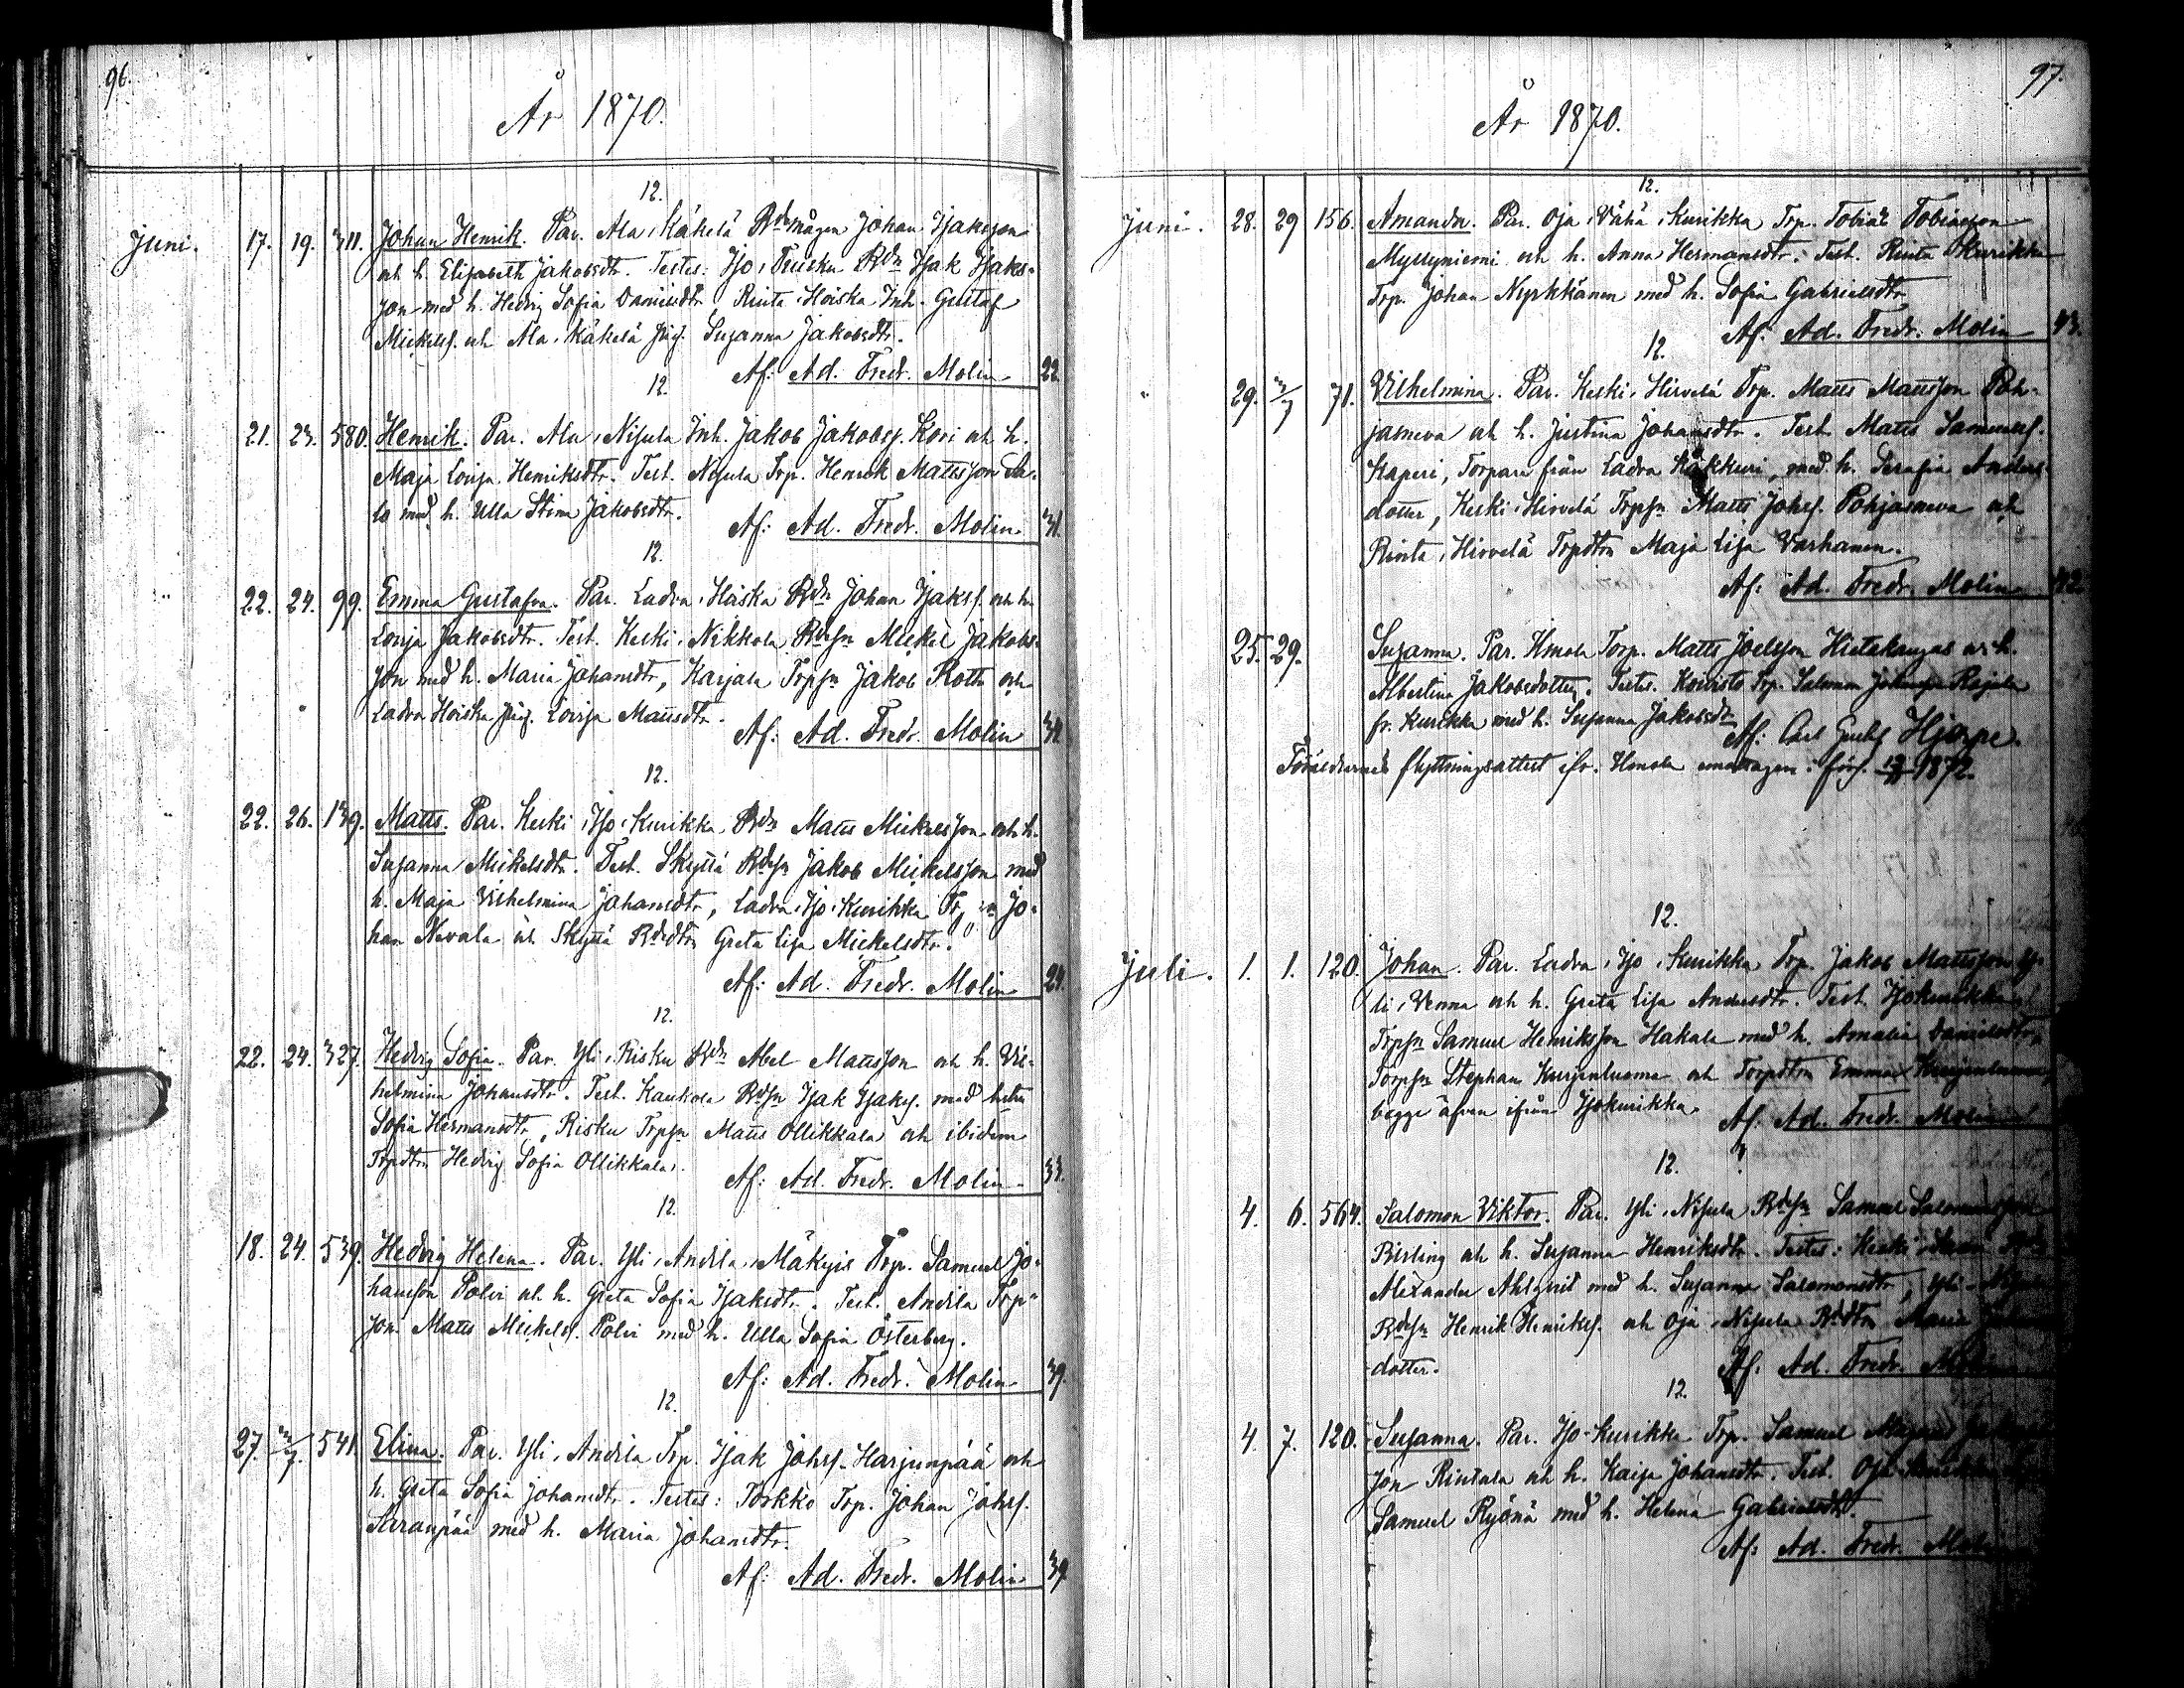 96.
År 1870.
12.
Juni. 17. 19. 311. Johan Henrik. Par. Ala, Käkelä Bdemågen Johan Isaksson
och h. Elisabeth Jakobsdtr. Testes: Iso, Bdn Isak Isaks-
son med h. Hedvig Sofia Danielsdtr, Rinta Hoiska Inh. Gustaf
Mickelss. och Ala, Käkelä pig. Susanna Jakobsdtr.
Af: Ad. Fredr. Molin 22
12.
21. 23. 580. Henrik. Par. Ala, Nisula Inh. Jakob Jakobss. Kori och h.
Maja Lovisa Henriksdtr. Test. Nisula Trp. Henrik Mattsson Sa-
lo med h. Ulla Stina Jakobsdtr.
Af: Ad. Fredr. Molin 31.
12.
22. 24. 99. Emma Gustafva. Par. Ladva, Hoiska Bdn Johan Isakss. och h.
Lovisa Jakobsdtr. Test. Keski, Nikkola Bdesn Mickel Jakobs-
son med h. Maria Johansdtr, Karjala Trpsn Jakob Roth och
Ladva Hoiska pig. Lovisa Mattsdtr.
Af: Ad. Fredr. Molin
12.
22. 26. 139. Matts. Par. Keski, Iso, Kurikka Bdn Matts Mickelsson och h.
Susanna Mickelsdtr. Test. Skyttä Bdesn Jakob Mickelsson med
h. Maja Vilhelmina Johansdtr, Ladva, Iso, Kurikka Jo-
han Nevala och Skyttä Bdedtrn Greta Lisa Mickelsdtr.
Af: Ad. Fredr. Molin 24.
12.
22. 24. 327. Hedvig Sofia. Par. Yli, Risku Bdn Abel Mattsson och h. Vil-
helmina Johansdtr. Test. Kankola Bdsn Isak Isakss. med hustru
Sofia Hermansdtr, Risku Trpsn Matts Ollikkala och ibidem
Trpdtrn Hedvig Sofia Ollikkala.
Af: Ad. Fredr. Molin 33.
12.
18. 24. 539. Hedvig Helena. Par. Yli, Andila, Mäkyis Trp. Samuel Jo-
hansson Polvi och h. Greta Sofia Isaksdtr. Test. Andila Trp-
son Matts Mickelss. Polvi med h. Ulla Sofia Österberg.
Af: Ad. Fredr. Molin 39.
12.
27. 3/7. 541. Elina. Par. Yli, Andila Trp. Isak Johss. Harjunpää och
h. Greta Sofia Johansdtr. Testes: Torkko Trp. Johan Johss.
med h. Maria Johansdtr.
Af: Ad. Fredr. Molin 39
97.
År 1870.
12.
Juni. 28. 29 156. Amanda. Par. Oja, Vähä, Kurikka Trp. Tobias Tobiasson
Myllyniemi och h. Anna Hermansdtr. Test. Rinta Kurikka
Trp. Johan Nyrkkänen med h. Sofia Gabrielsdtr
Af: Ad. Fredr. Molin 43.
12.
" 29. 3/7 71. Vilhelmina. Par. Keski, Hirvelä Trp. Matts Mattsson Poh-
jasneva och h. Justina Johansdtr. Test. Matts Samuelss.
Kaperi, Torpare från Ladva Käkkuri, med h. Serafia Anders-
dotter, Keski, Hirvelä Trpsn Matts Johss. Pohjasneva och
Rinta, Hirvelä Trpdtrn Maja Lisa Varhanen.
Af: Ad. Fredr. Molin 42.
25. 29. Susanna. Par. Ilmola Torp. Matts Joelsson Hietakangas o. h.
Albertina Jakobsdotter. Testes. Koivisto Trp. Salomon
fr. Kurikka med h. Susanna Jakobsdtr
Af: Carl Gustaf Hjorpe.
Föräldrarnes flyttningsattest ifr. Ilmola emottagen i förs. 1872.
12.
Juli. 1. 1. 120. Johan. Par. Ladva, Iso, Kurikka Trp. Jakob Mattsson Y-
li, Venna och h. Greta Lisa Andersdtr. Test. Isokurikka
Trpsn Samuel Henriksson Hakala med h. Amalia Danielsdtr,
Torpsn Stephan Kurjenluoma och Torpdtrn Emma Kurjenluoma,
begge äfven ifrån Isokurikka.
Af: Ad. Fredr. Molin
12.
4. 6. 564. Salomon Viktor. Par. Yli, Nisula Bdesn Samuel Salomonsson
Birling och h. Susanna Henriksdtr. Testes: Keski
Alexander Ahlqvist med h. Susanna Salomonsdtr, Yli
Bdesn Henrik Henrikss. och Oja, Nisula Bdtrn Maria
dotter.
Af: Ad. Fredr. Molin
12.
4. 7. 120. Susanna. Par. Iso-Kurikka Trp. Samuel
son Rintala och h. Kaisa Johansdtr. Test. Oja
Samuel Ryönä med h. Helena Gabrielsdtr.
Af: Ad. Fredr. Molin